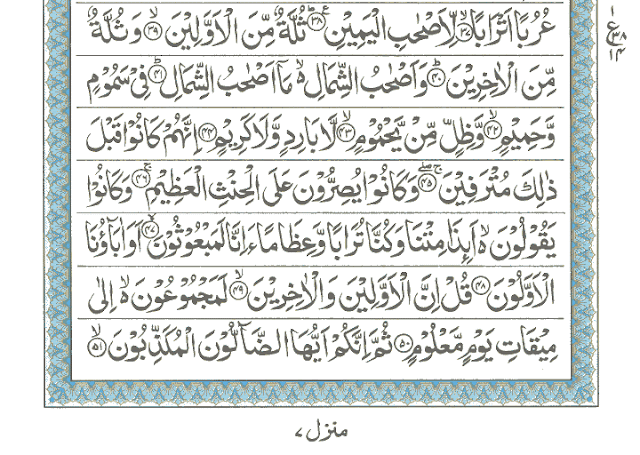 عُرُبًا اَتْرَابًا ۙ﴿۳۷﴾ لِّاَصْحٰبِ الْيَمِيْنِ ؕ﴿۳۸﴾ ثُلَّةٌ مِّنَ الْاَوَّلِيْنَ ۙ﴿۳۹﴾ وَ ثُلَّةٌ
مِّنَ الْاٰخِرِيْنَ ؕ﴿۴۰﴾ وَ اَصْحٰبُ الشِّمَالِ ۙ۬ مَاۤ اَصْحٰبُ الشِّمَالِ ؕ﴿۴۱﴾ فِيْ سَمُوْمٍ
وَّ حَمِيْمٍ ۙ﴿۴۲﴾ وَّ ظِلٍّ مِّنْ يَّحْمُوْمٍ ۙ﴿۴۳﴾ لَّا بَارِدٍ وَّ لَا كَرِيْمٍ ﴿۴۴﴾ اِنَّهُمْ كَانُوْا قَبْلَ
ذٰلِكَ مُتْرَفِيْنَ ۚۖ﴿۴۵﴾ وَ كَانُوْا يُصِرُّوْنَ عَلَى الْحِنْثِ الْعَظِيْمِ ۚ﴿۴۶﴾ وَ كَانُوْا
يَقُوْلُوْنَ ۙ۬ اَىِٕذَا مِتْنَا وَ كُنَّا تُرَابًا وَّ عِظَامًا ءَاِنَّا لَمَبْعُوْثُوْنَ ۙ﴿۴۷﴾ اَوَ اٰبَآؤُنَا
الْاَوَّلُوْنَ ﴿۴۸﴾ قُلْ اِنَّ الْاَوَّلِيْنَ وَ الْاٰخِرِيْنَ ۙ﴿۴۹﴾ لَمَجْمُوْعُوْنَ ۙ۬ اِلٰى
مِيْقَاتِ يَوْمٍ مَّعْلُوْمٍ ﴿۵۰﴾ ثُمَّ اِنَّكُمْ اَيُّهَا الضَّآلُّوْنَ الْمُكَذِّبُوْنَ ۙ﴿۵۱﴾
۱
ع ۳۸
۱۴
منزل ۷